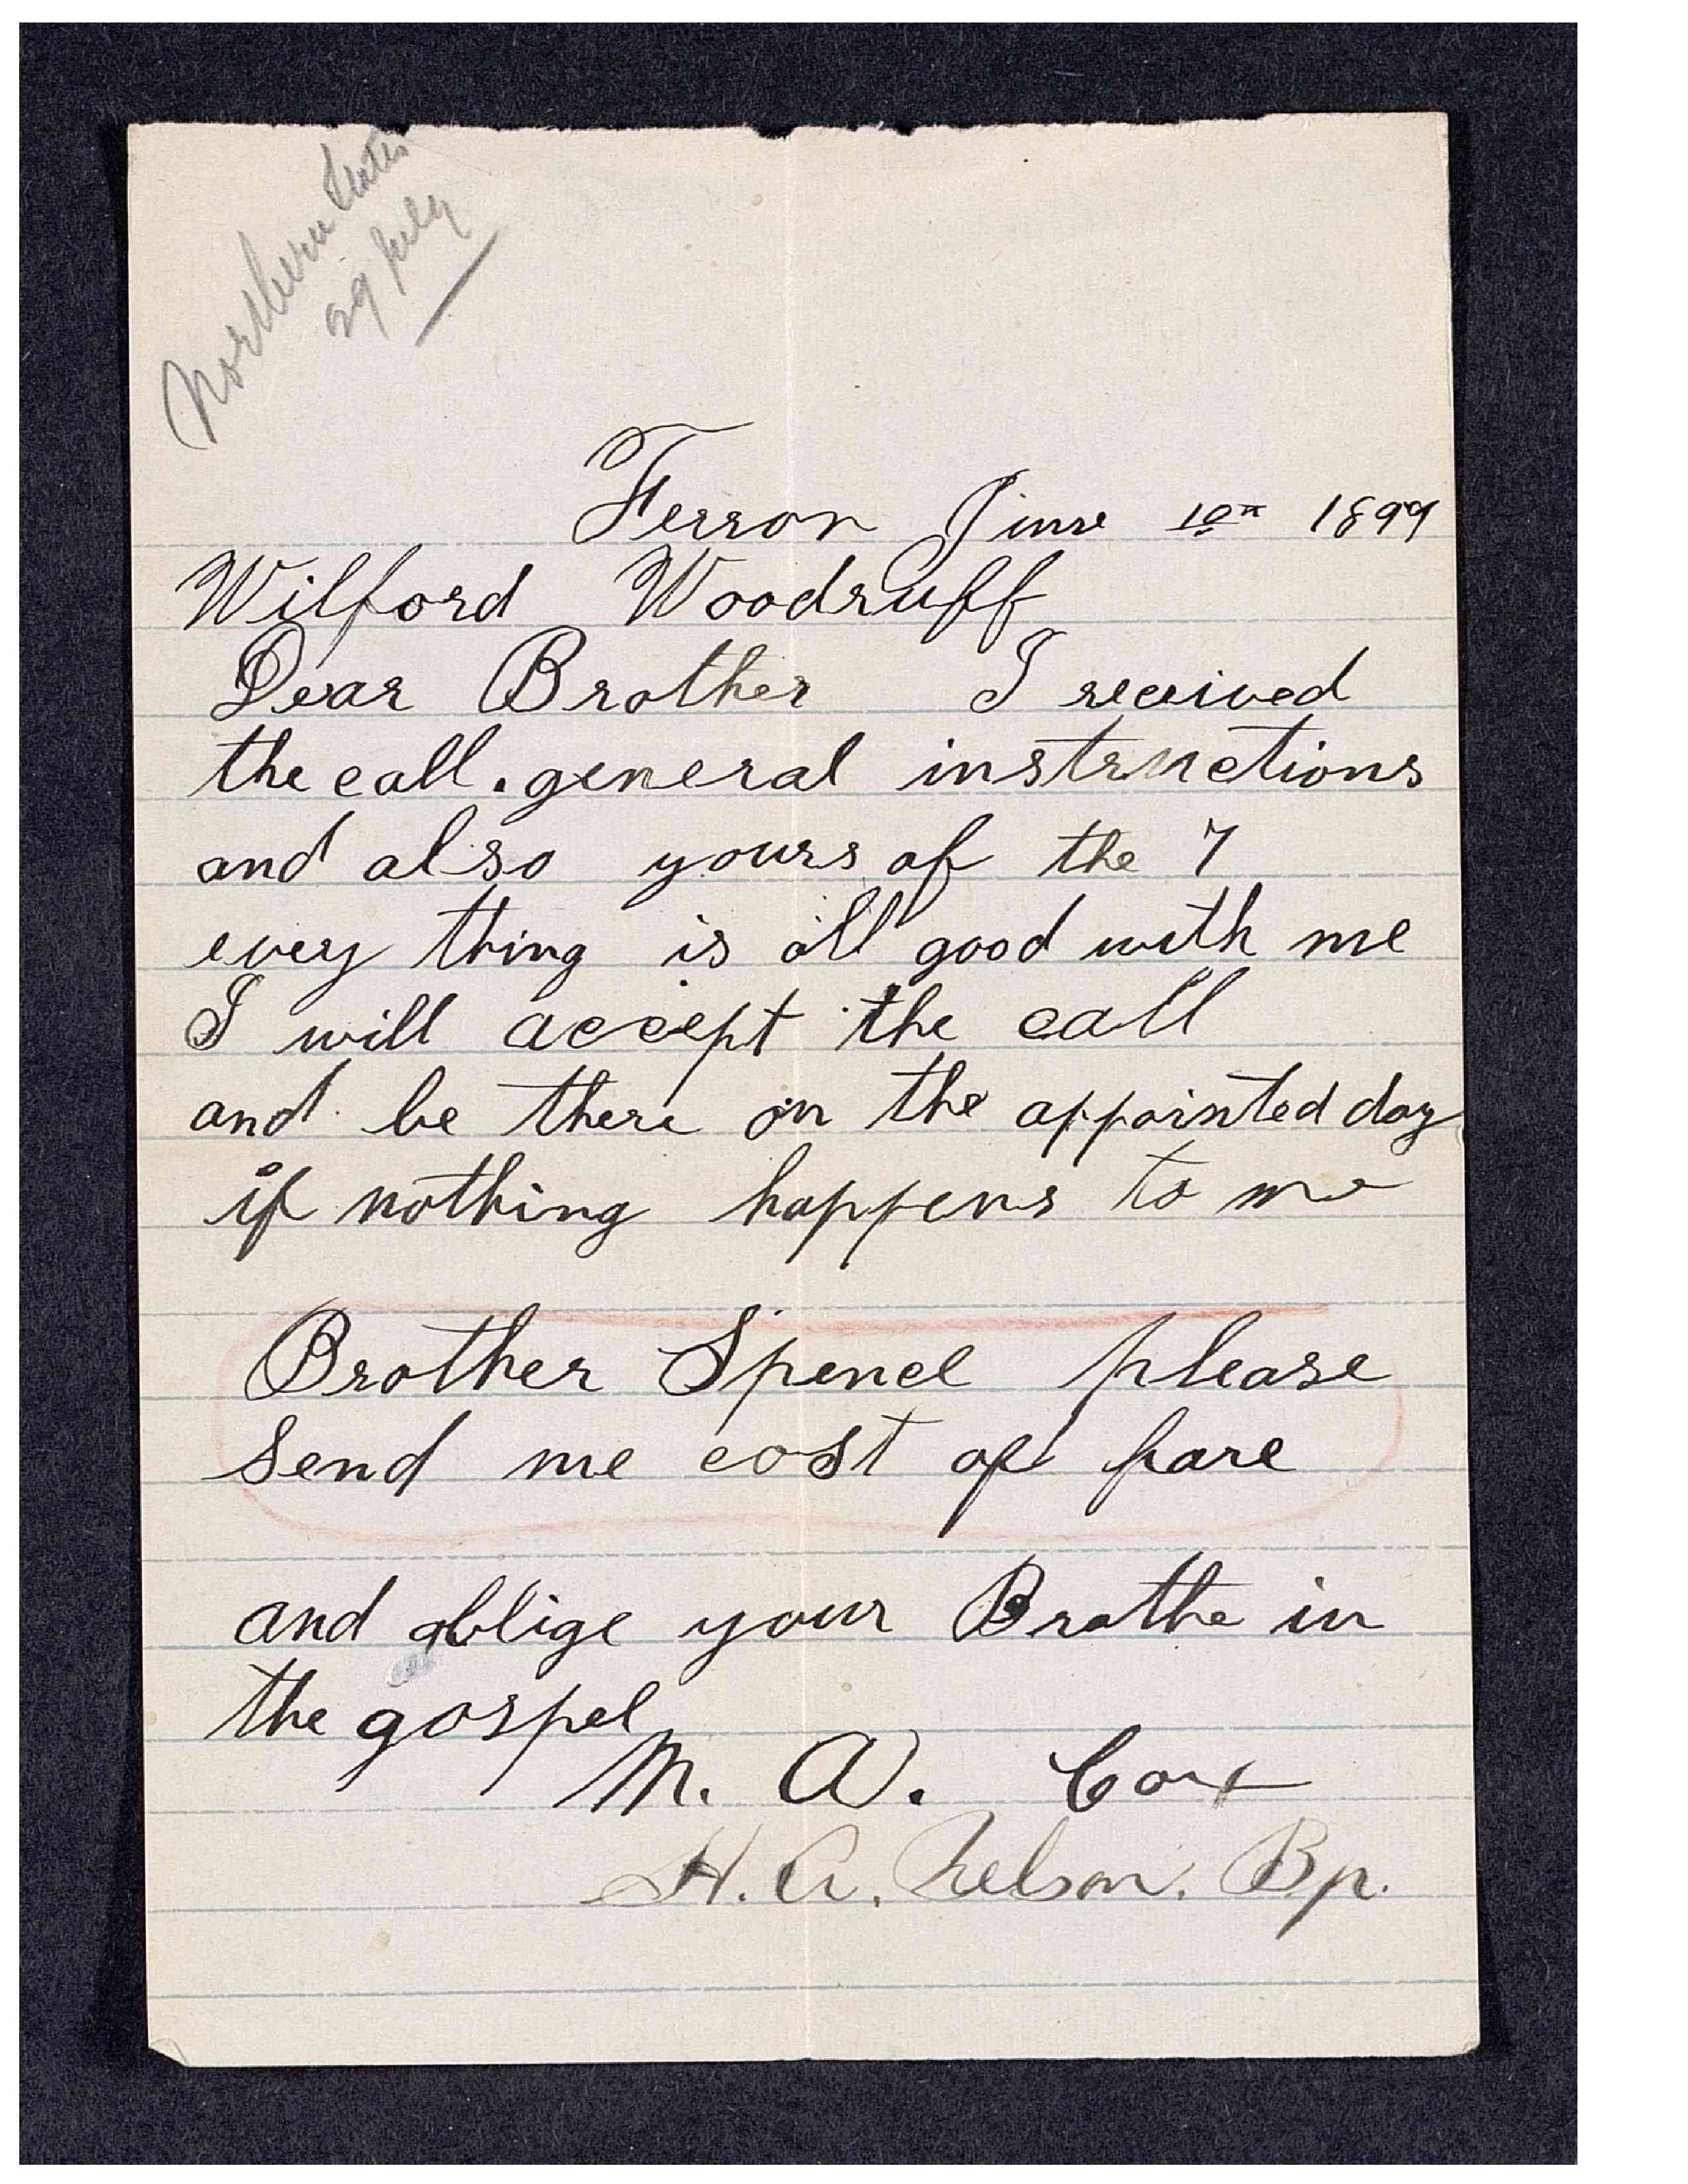 Northern States
29 July
Ferron June 10th 1899
Wilford Woodruff
Dear Brother I received
the call. general instructions
and also yours of the 7
every thing is all good with me
I will accept the call
and be there on the appointed day
if nothing happens to me
Brother Spence please
send me cost of fare
and oblige your Brothe in
the gospel
M. A. Cox
H. A. Nelson. Bp.